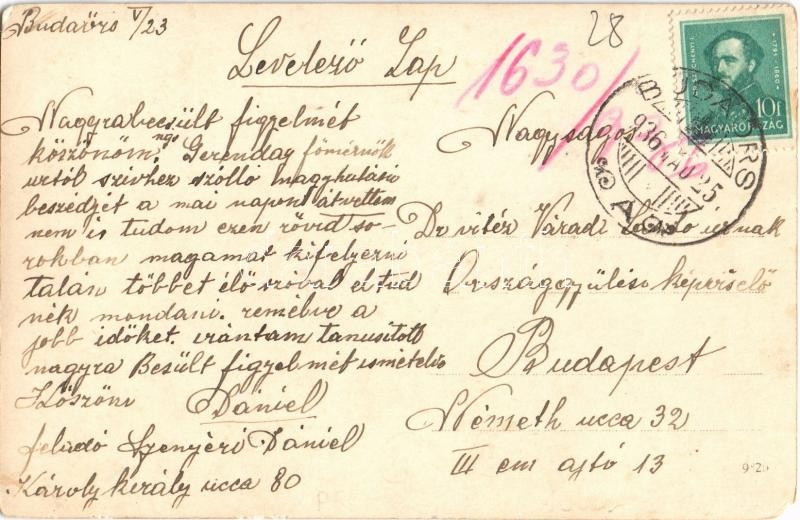 Budaörs V/23
28
Levelező Lap
1630
Nagyrabecsült figyelmét
köszönöm, ngs Gerenday főmérnök
urtól szivhez szólló nagyhatású
beszédjét a mai napon átvettem
nem is tudom ezen rövid so-
rokban magamat kifejezni
talán többet élő szóval el tud
nék mondani. remélve a
jobb időket. irántam tanusitott
nagyra Besült figyelmét ismételve
Köszöni Dániel
feladó Szenyéri Dániel
Károly király ucca 80
Nagyságos
Dr vitéz Váradi László urnak
Országgyülési képviselő
Budapest
Németh ucca 32
III em ajtó 13
10f
MAGYARORSZÁG
BUDAÖRS
936 MÁJ 25.
9821